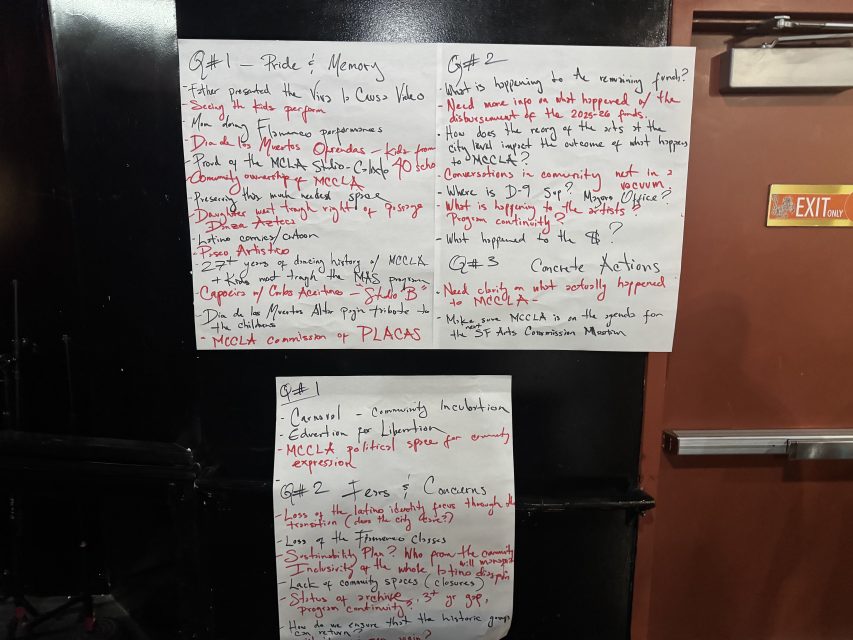 Q#1 - Pride & Memory
- Father presented the Viva la Causa Video
- Seeing the kids perform
- Mom doing Flamenco performances
- Dia de los Muertos Ofrendas - Kids from 40 scho
- Proud of the MCLA Studio-
- Community ownership of MCCLA
- Preserving this much needed space
- Daughter went trough right of passage
Danza Azteca
- Latino comics/cartoon
- Paseo Artistico
- 27+ years of dancing history w/ MCCLA
+ Kids went trough the MAS program
- Capoeira w/ Carlos Aceituno - "Studio B"
- Dia de los Muertos Altar pagin tribute to
the childrens
- MCCLA commission of PLACAS
Q#2
- What is happening to the remaining funds?
- Need more info on what happened w/ the
disbursement of the 2025-26 funds.
- How does the reorg of the arts at the
city level impact the outcome of what happens
to MCCLA?
- Conversations in comunity not in a
vacuum
- Where is D-9 Sup? Mayors Office?
- What is happening to the artists?
Program continuity?
- What happened to the $?
Q#3 Concrete Actions
- Need clarity on what actually happened
to MCCLA-
- Make sure MCCLA is on the agenda for
the next SF Arts Commission Meeting
EXIT ONLY
Q#1
- Carnaval - Community Incubation
- Education for Liberation
- MCCLA political space for community
expression
Q#2 Fears & Concerns
- Loss of the latino identity focus through the
transition (does the city care?)
- Loss of the Flamenco Classes
- Sustainability Plan? Who from the community
will manage
- Inclusivity of the whole latino diaspora
- Lack of comunity spaces (closures)
- Status of archive, 3+ yr gap,
program continuity,
- How do we ensure that the historic groups
can return?